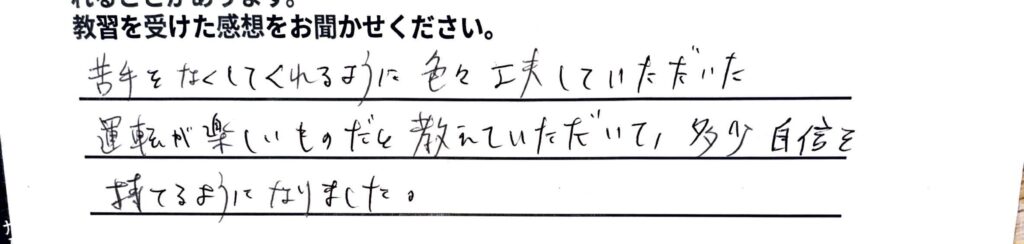 れることがあります。
教習を受けた感想をお聞かせください。
苦手をなくしてくれるように色々工夫していただいた
運転が楽しいものだと教えていただいて、多少自信を
持てるようになりました。